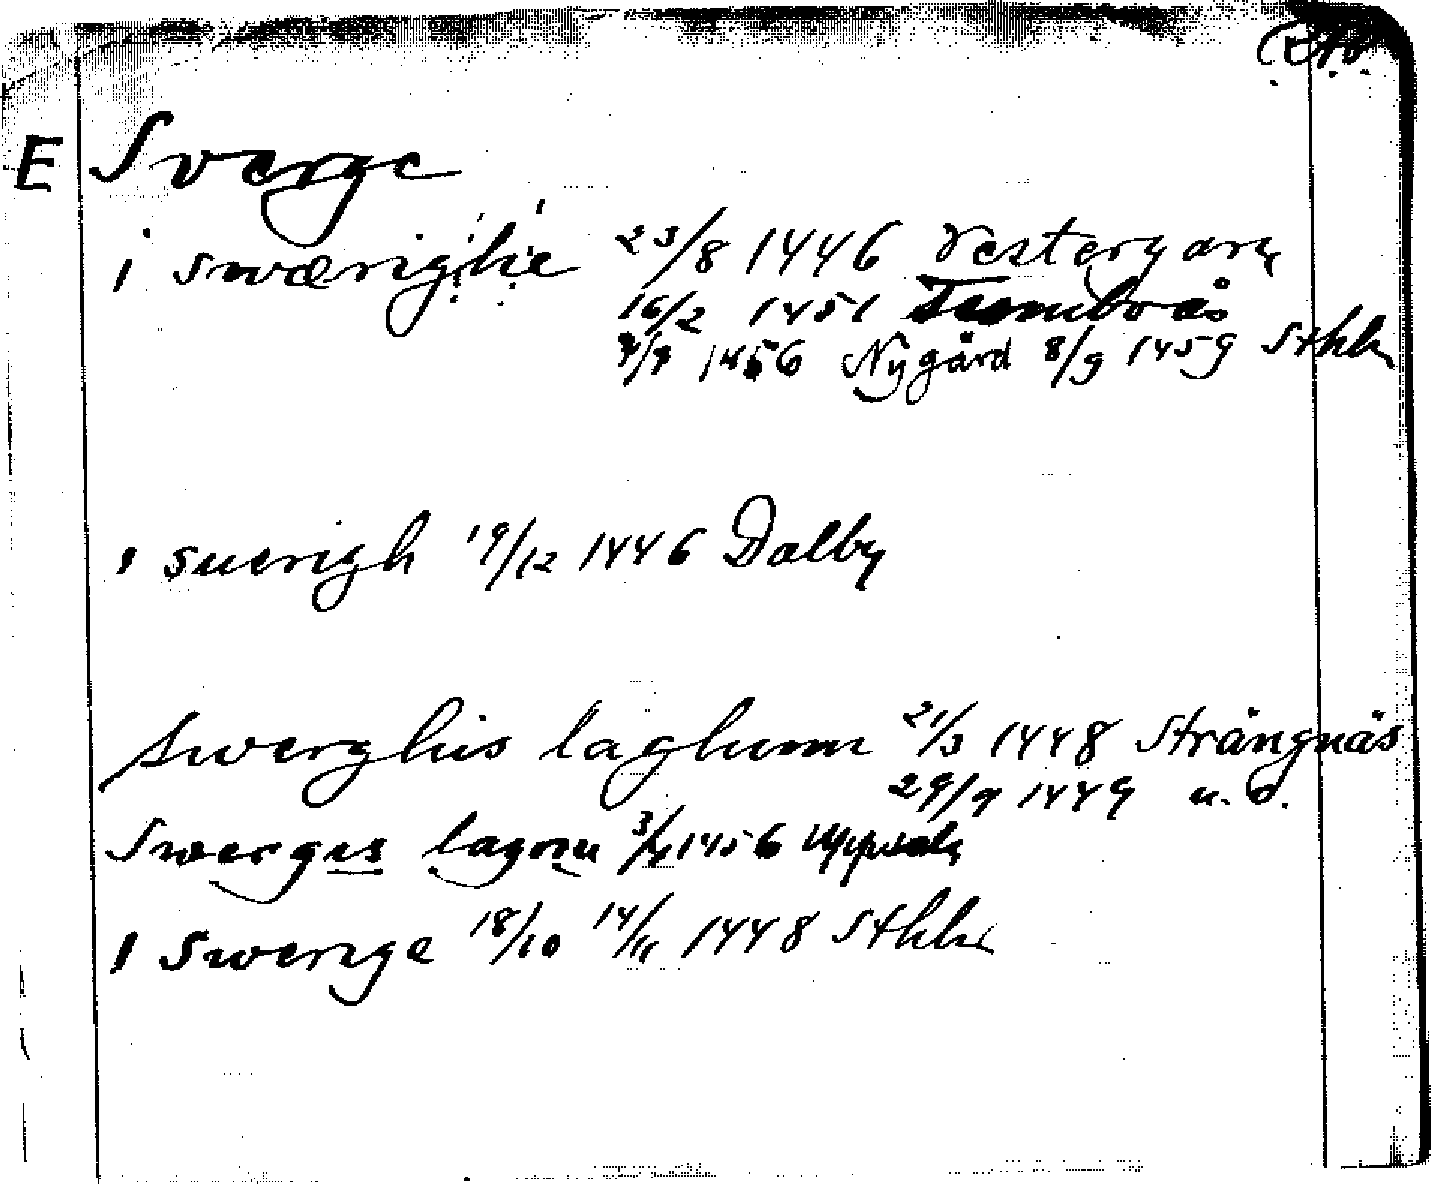 E Sverge
i swærighe 23/8 1446 Vestergarn
16/2 1451
1456 Nygård 8/9 1459 Sthlm
i suerigh 19/12 1446 Dalby
swerghis laghum 21/3 1448 Strängnäs
29/9 1449 u. o.
Swerges lagom 1456 Uppsala
i Swerige 18/10 14/11 1448 Sthlm